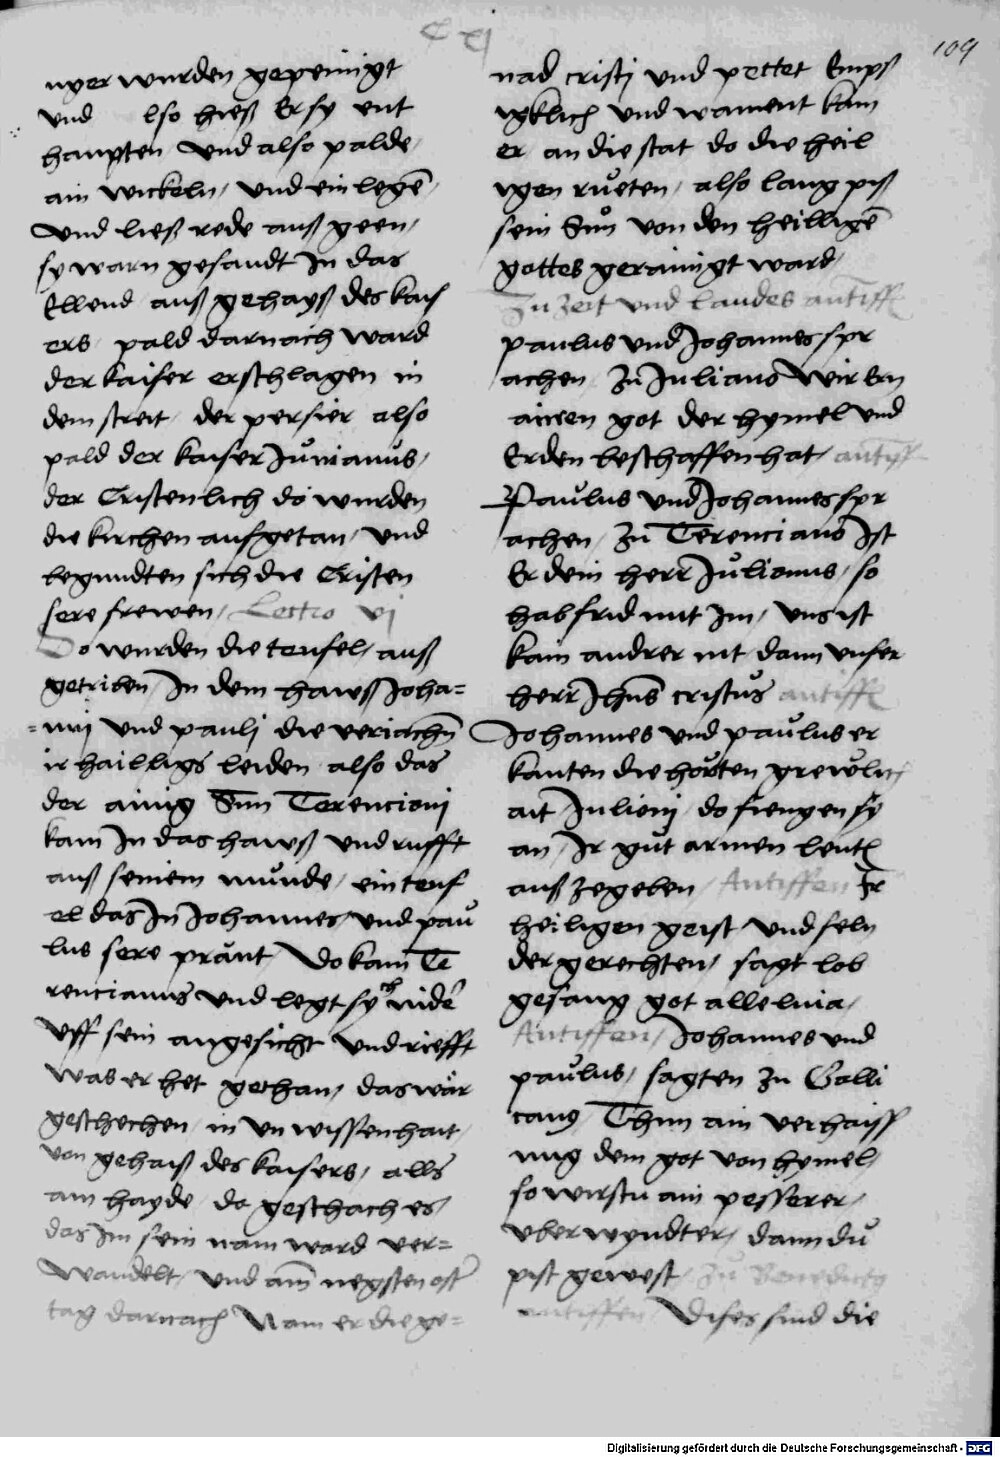 C xj
109
nger wurden gepeinigt
vnd lso hieß Er sy ent
haupten vnd also palde
ain wickeln, vnd ein legen̄,
vnd ließ rede auß geen,
sy warn gesandt In das
Ellend auß gehayß des kais
ers pald darnach ward
der kaiser erschlagen in
dem streit, der persier also
pald der kaiser Juuianus,
der Cristenlich do wurden
die kirchen aufgetan, vnd
begundten sich die Cristen
sere frewen, Lectio vj
Do wurden die teufel, auß
getriben, In dem hawß Joha=
=nnj vnd paulj die veriachn̄
ir hailligs leiden also das
der ainig Sun Terencianj
kam In das hawß vnd rufft
auß seinem munde, ein teuf
el das In Johannes, vnd pau
lus sere prant, Do kam Te
rencianus vnd legt sich nider
vff sein angesicht vnd riefft
was er het gethan, das wär
geschechen, in vnwissenhait,
von gehaiß des kaisers, alls
ain hayde, do geschach es,
das Im sein nam ward ver=
wandelt, vnd am negsten oster
tag darnach Nam er die ge=
nad cristj vnd pettet Emps
igklich vnd wainent kam
er, an die stat do die heil
igen rueten, also lang piß
sein Sun von den heilligen̄
gottes gerainigt ward,
Zu Zeit vnd laudes antiff
paulus vnd Johannes spr
achen, Zu Juliano Wir Ern
ainen got der hymel vnd
Erden beschaffen hat, antiff
Paulus vnd Johannes spr
achen, Zu Terenciano Ist
Er dein herr Julianus, so
hab frid mit Im, vns ist
kain andrer nit, dann vnser
herr Jhūs cristus antiff
Johannes vnd paulus er
kanten die horten grewlich
ait Julianj, do fiengen sy
an, Ir gut armen leuten
auß zegeben, Antiffen Ir
heiligen geist vnd seln
der gerechten, sagt lob
gesang got alleluia,
Antiffen, Johannes vnd
paulus, sagten zu Galli
cano, Thun ain verhaiss
ung dem got von hymel,
so wirstu ain pesserer,
vberwyndter, dann du
pist gewest, Zu Benedictus
antiffen, Dises sind die
Digitalisierung gefördert durch die Deutsche Forschungsgemeinschaft - DFG